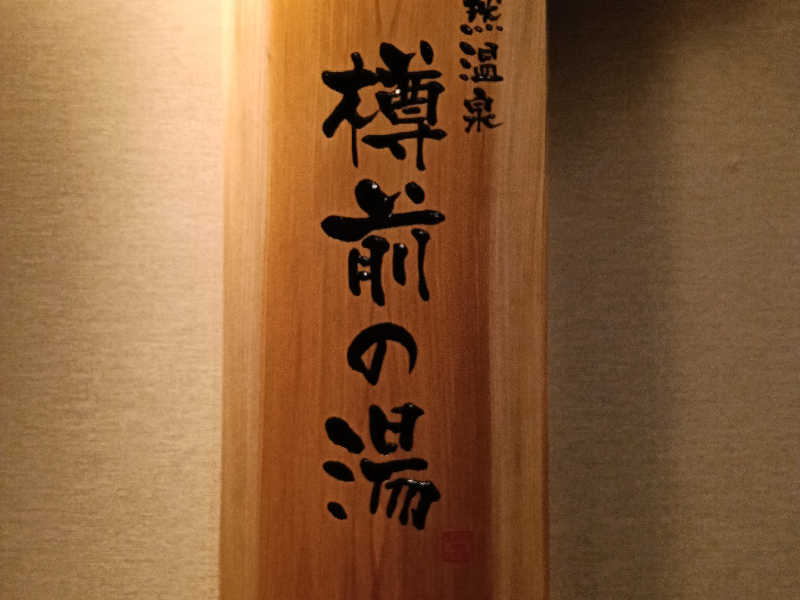 然温泉
樽前の湯